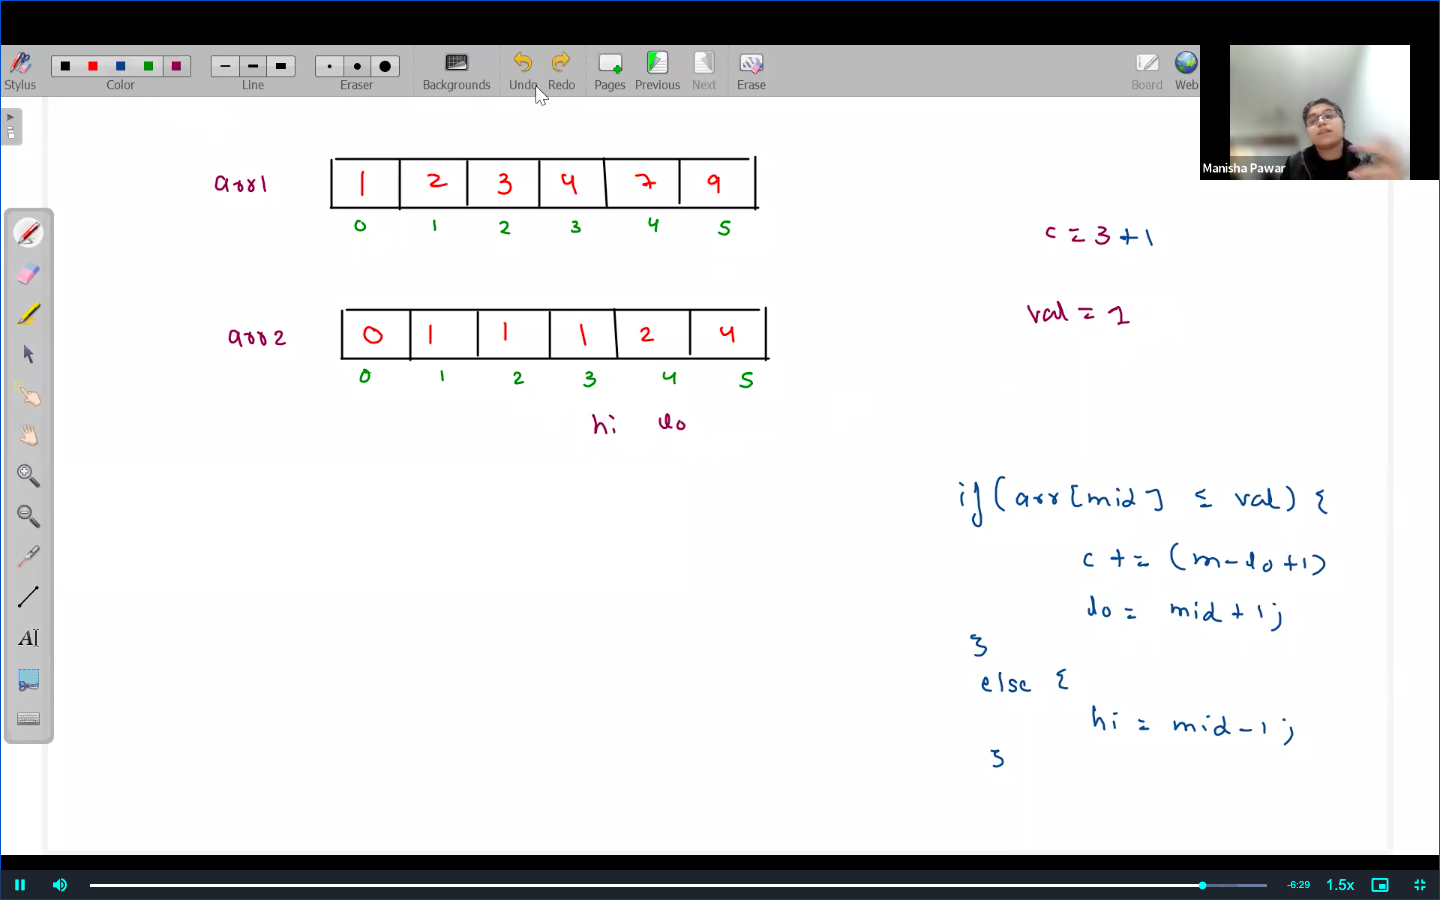 Stylus Color Line Eraser Backgrounds Undo Redo Pages Previous Next Erase Board Web
Manisha Pawar
arr1 1 2 3 4 7 9
0 1 2 3 4 5
c = 3 + 1
val = 1
arr2 0 1 1 1 2 4
0 1 2 3 4 5
hi lo
if (arr[mid] ≤ val) {
c += (m - lo + 1)
lo = mid + 1;
}
else {
hi = mid - 1;
}
AI
-6:29 1.5x